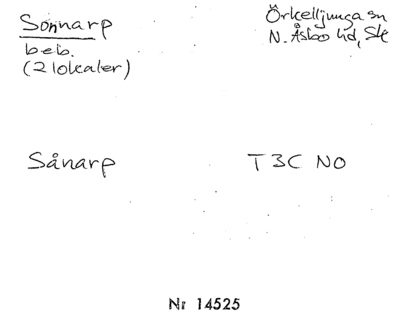 Sonnarp
Örkelljunga sn
beb.
N. Åsbo hd, Sk
(2 lokaler)
Sånarp
T 3C NO
Nr 14525